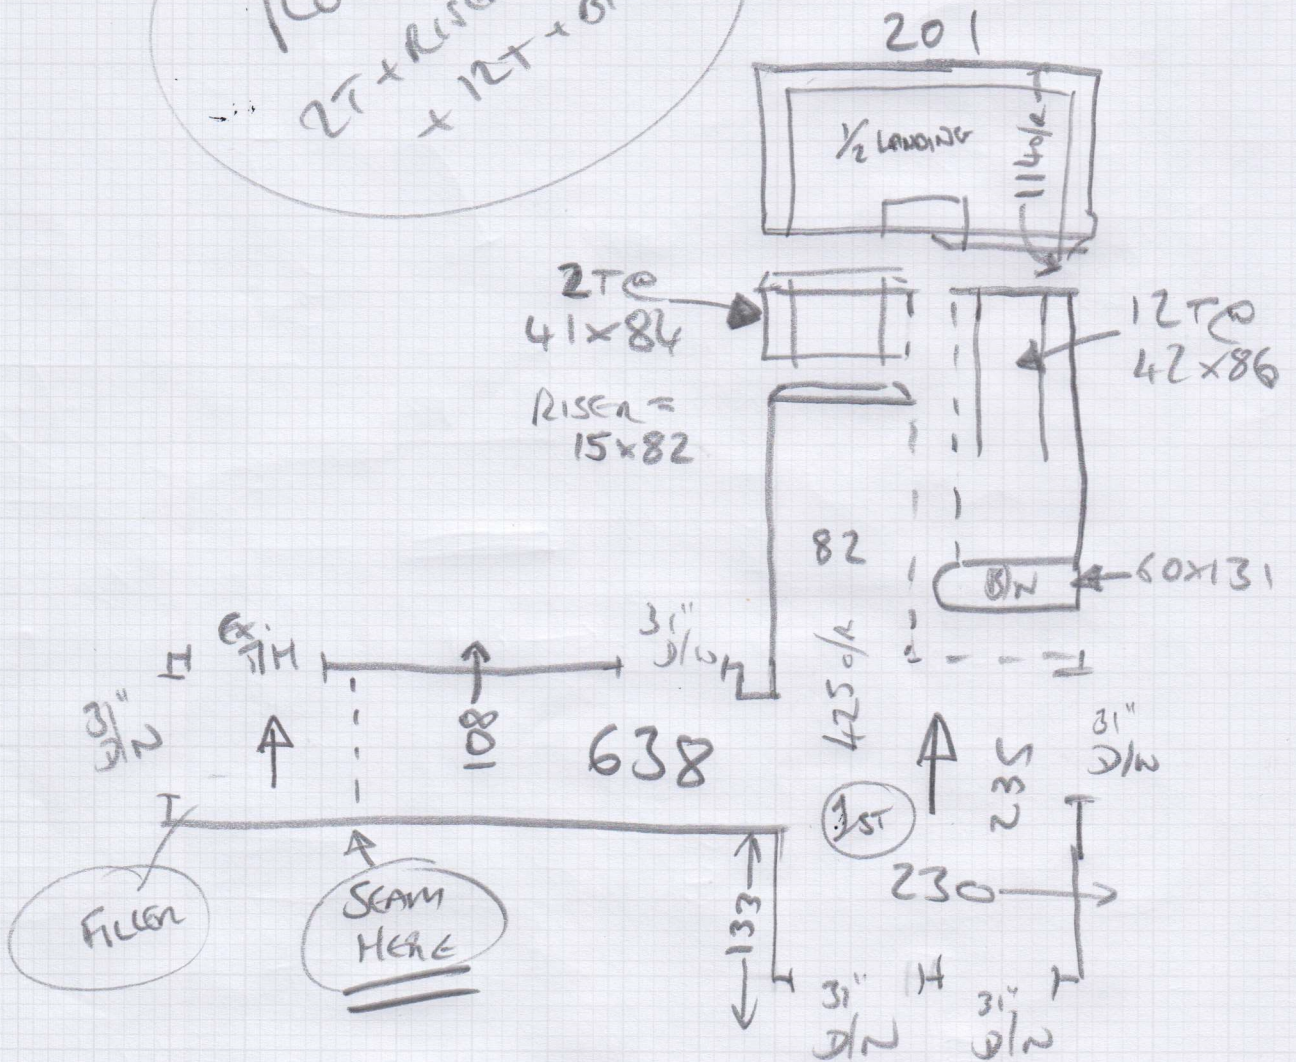 2T + RISE
+ 12T + B
201
1/2 LANDING
114 o/R
2T@
41x84
12T@
42x86
RISER =
15x82
82
B/N
60x131
425 o/R
Ex.
31"
D/W
31"
D/N
108
638
235
31"
D/W
1ST
230
133
FILLER
SEAM
HERE
31"
D/N
31"
D/N